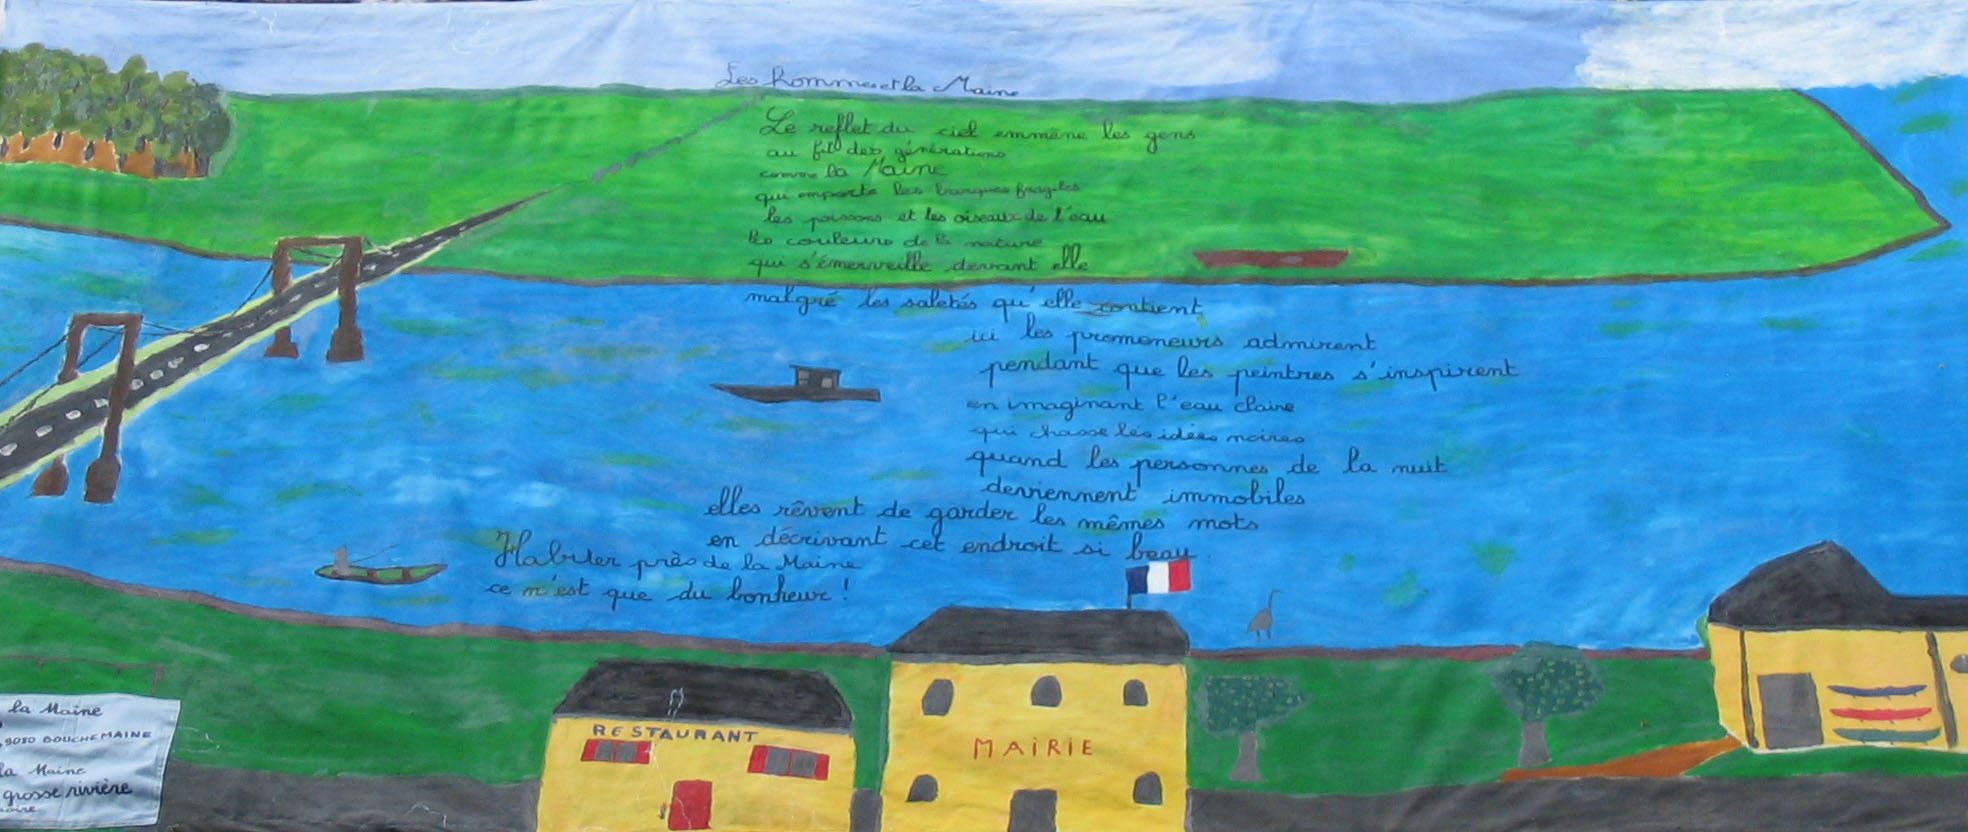 Les hommes et la Maine
Le reflet du ciel emmène les gens
au fil des générations
comme la Maine
qui emporte les barques fragiles
les poissons et les oiseaux de l'eau
les couleurs de la nature
qui s'émerveille devant elle
malgré les saletés qu'elle contient
ici les promeneurs admirent
pendant que les peintres s'inspirent
en imaginant l'eau claire
qui chasse les idées noires
quand les personnes de la nuit
deviennent immobiles
elles rêvent de garder les mêmes mots
en décrivant cet endroit si beau.
Habiter près de la Maine
ce n'est que du bonheur !
RESTAURANT
MAIRIE
la Maine
9080 BOUCHEMAINE
la Maine
grosse rivière